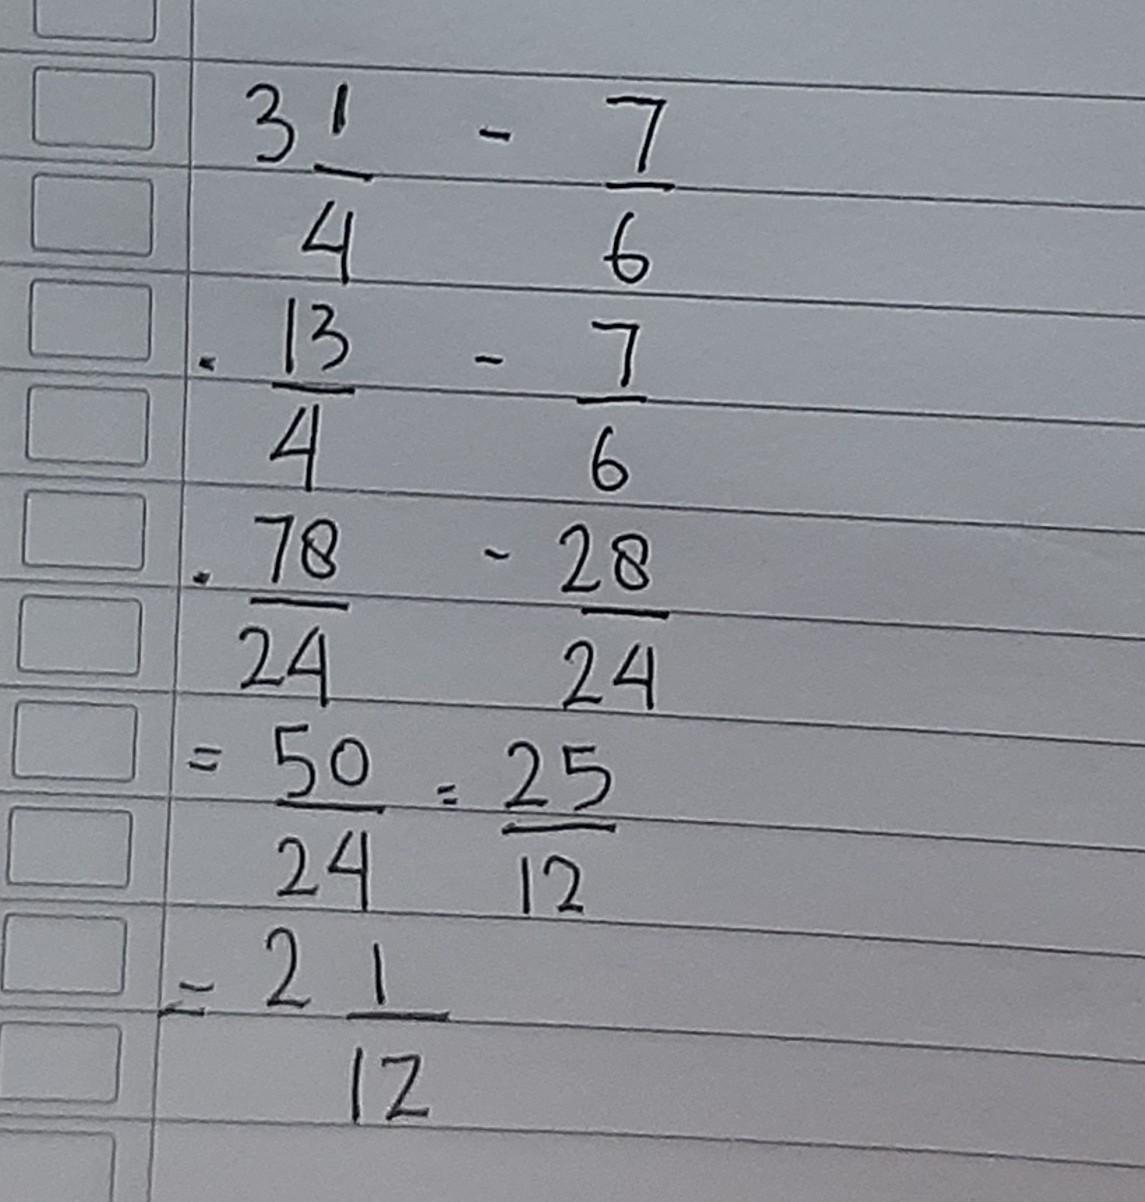 3 1/4 - 7/6
. 13/4 - 7/6
. 78/24 - 28/24
= 50/24 = 25/12
= 2 1/12